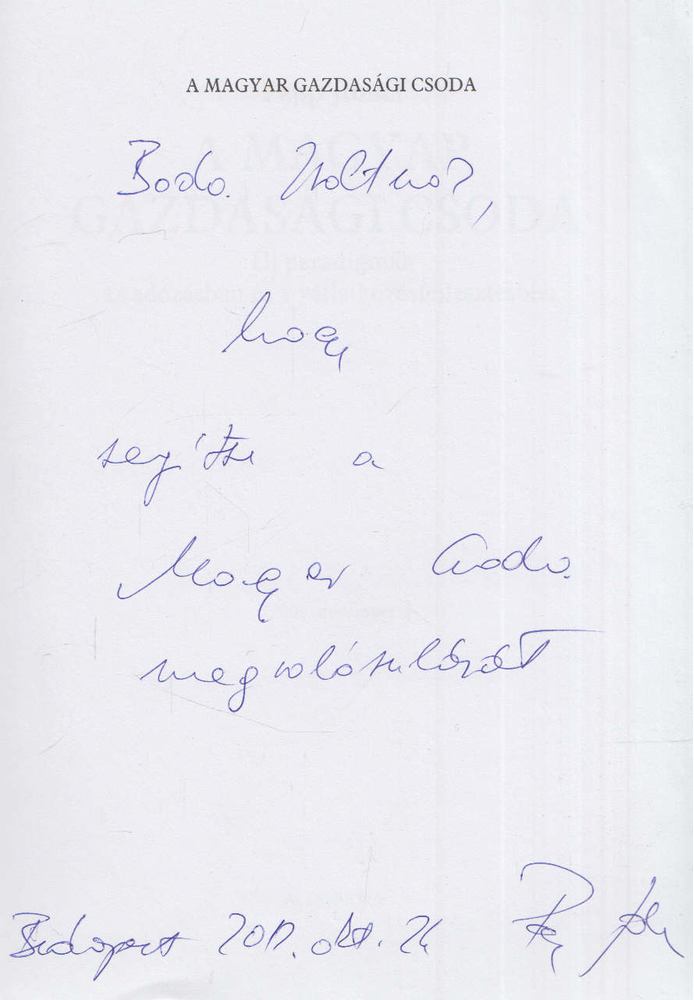 A MAGYAR GAZDASÁGI CSODA
Bodo Zoltnak,
hogy
segítse a
Magyar Csoda
megvalósulását
Budapest okt.